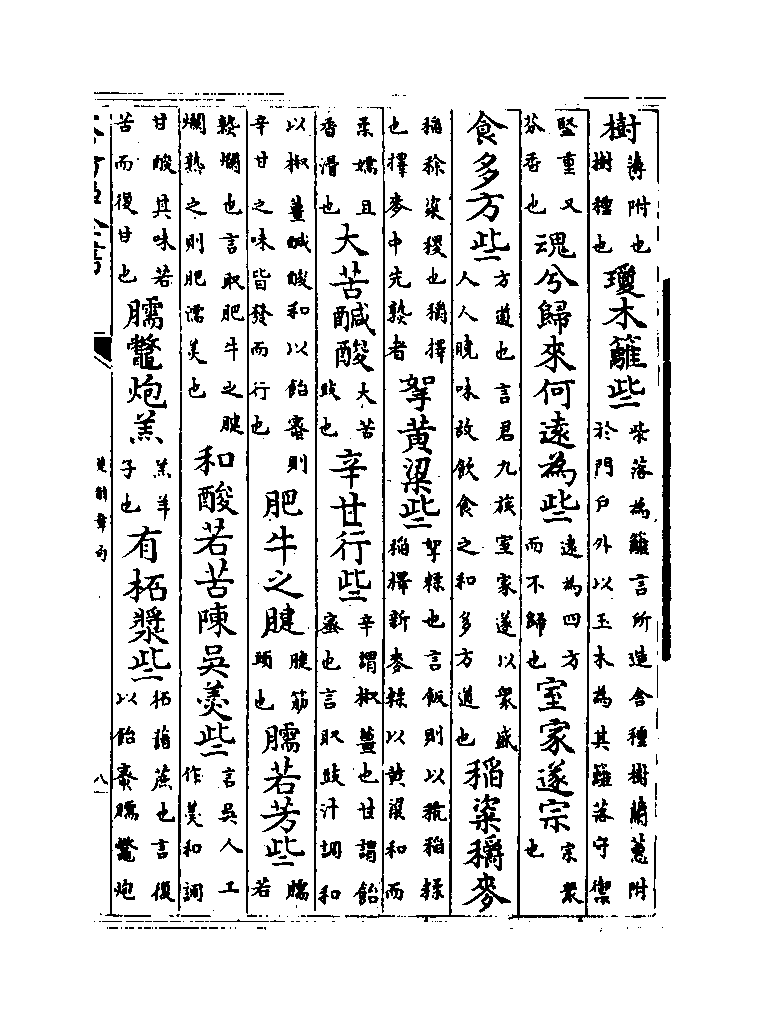 樹薄附也樹種也瓊木籬些柴落為籬言所造舍種樹蘭蕙附於門戶外以玉木為其籬落守禦
堅重又芬香也魂兮歸來何遠為些遠為四方而不歸也室家遂宗宗衆也
食多方些方道也言君九族室家遂以衆盛人人曉味故飲食之和多方道也稻粢穱麥
稻稌粢稷也穱擇也擇麥中先熟者挐黃粱些挐糅也言飯則以秔稻糅稻擇新麥糅以黃粱和而
柔嬬且香滑也大苦醎酸大苦豉也辛甘行些辛謂椒薑也甘謂飴蜜也言取豉汁調和
以椒薑醎酸和以飴蜜則辛甘之味皆發而行也肥牛之腱腱筋頭也臑若芳些臑若
熟爛也言取肥牛之腱爛熟之則肥濡美也和酸若苦陳吳羹些言吳人工作羹和調
甘酸其味若苦而復甘也臑鼈炮羔羔羊子也有柘漿些柘藷蔗也言復以飴蜜臑鼈炮
楚辭章句
八